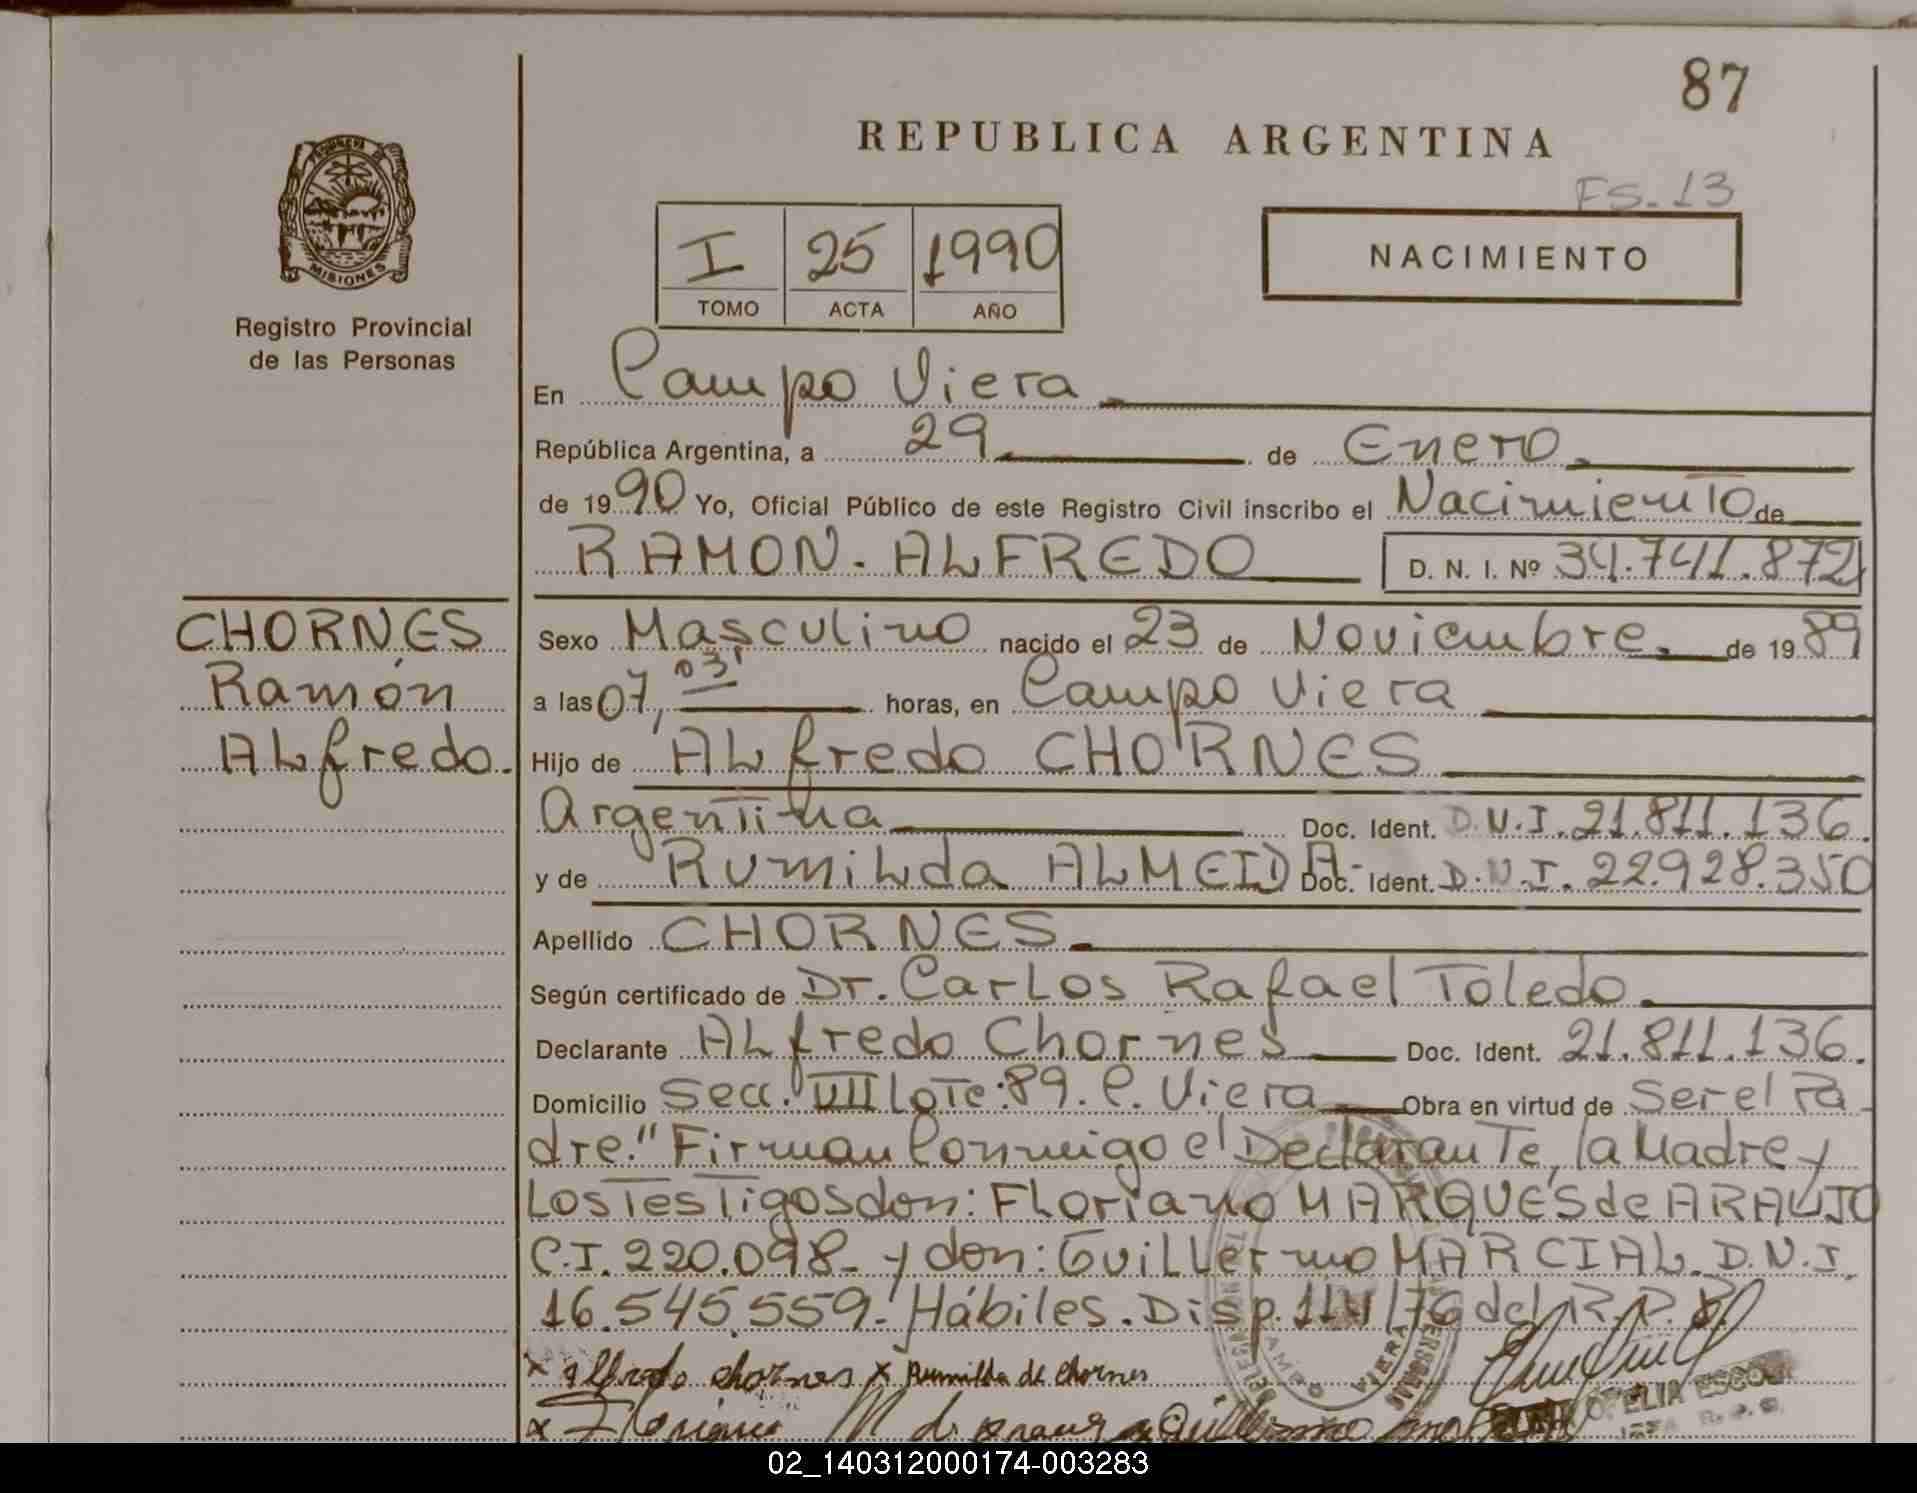 87
REPUBLICA ARGENTINA
FS. 13
MISIONES
Registro Provincial
de las Personas
I 25 1990
TOMO ACTA AÑO
NACIMIENTO
En Campo Viera
República Argentina, a 29 de Enero.
de 1990 Yo, Oficial Público de este Registro Civil inscribo el Nacimiento de
RAMON. ALFREDO D. N. I. Nº 34.741.872
CHORNES
Ramón
ALfredo.
Sexo Masculino nacido el 23 de Noviembre. de 1989
a las 07, 03' horas, en Campo Viera
Hijo de ALfredo CHORNES
Argentina Doc. Ident. D.N.I. 21.811.136.
y de RumiLda ALMEIDA- Doc. Ident. D.N.I. 22.928.350
Apellido CHORNES.
Según certificado de Dr. CarLos Rafael Toledo.
Declarante ALfredo Chornes Doc. Ident. 21.811.136.
Domicilio Secc. VIII Lote: 89. C. Viera Obra en virtud de Ser el Pa-
dre." Firman Conmigo el Declarante, la Madre y
Los Testigos don: FLoriano MARQUES de ARAUJO
C.I. 220.098- y don: GuiLLermo MARCIAL. D.N.I.
16.545.559.- Hábiles. Disp. 114/76 del R.P.P.
x alfredo chornes x Rumilda de Chornes
OFELIA
02_140312000174-003283